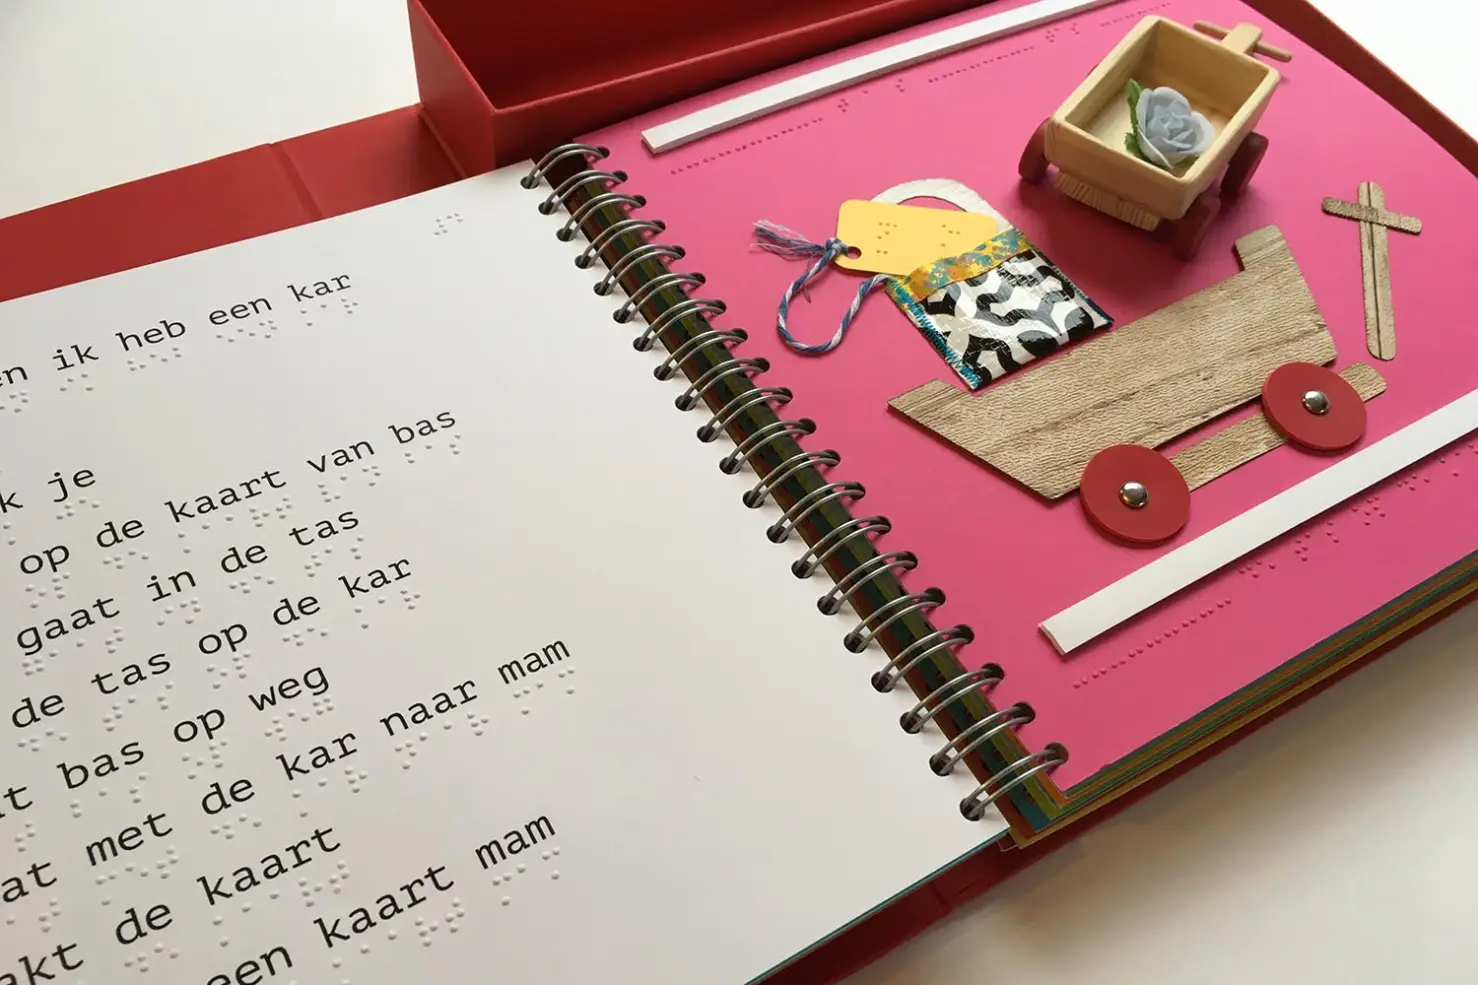 ik heb een kar
je
op de kaart van bas
gaat in de tas
de tas op de kar
bas op weg
met de kar naar mam
de kaart
een kaart mam